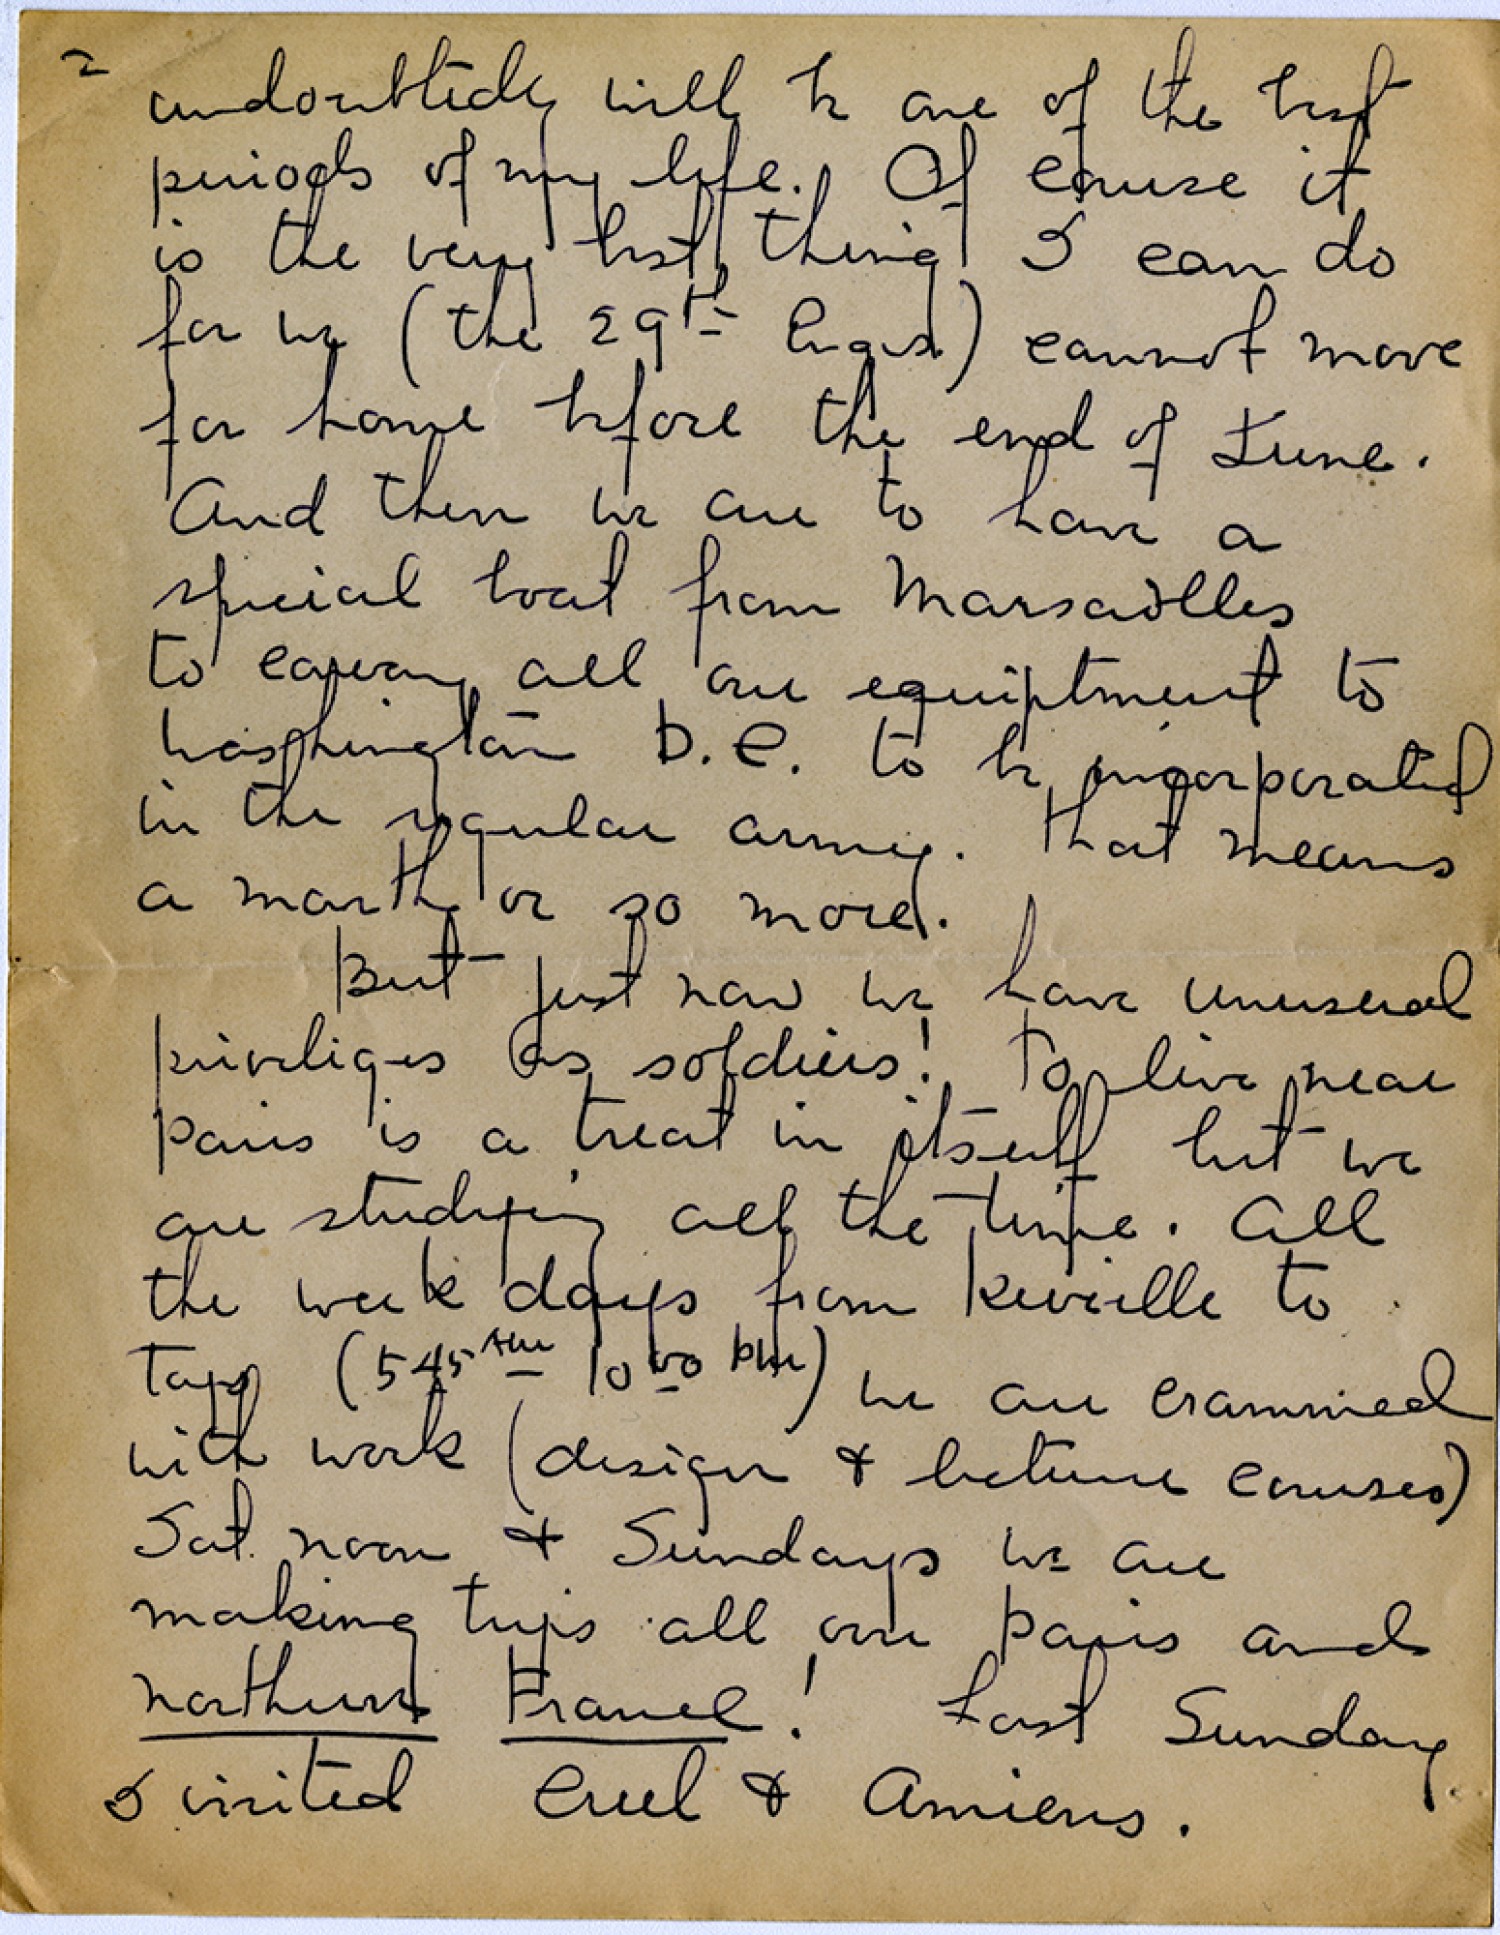 2
undoubtedly will be one of the best
periods of my life. Of course it
is the very best thing I can do
for we (the 29th Engrs) cannot move
for home before the end of June.
And then we are to have a
special boat from Marsailles
to convey all our equiptment to
Washington D.C. to be incorporated
in the regular army. That means
a month or so more.
But just now we have unusual
priveliges as soldiers! To live near
Paris is a treat in itself but we
are studying all the time. All
the week days from Reveille to
taps (545 AM - 1000 PM) we are crammed
with work (design & lecture courses)
Sat. noon & Sundays we are
making trips all over Paris and
northern France! Last Sunday
I visited Creil & Amiens.